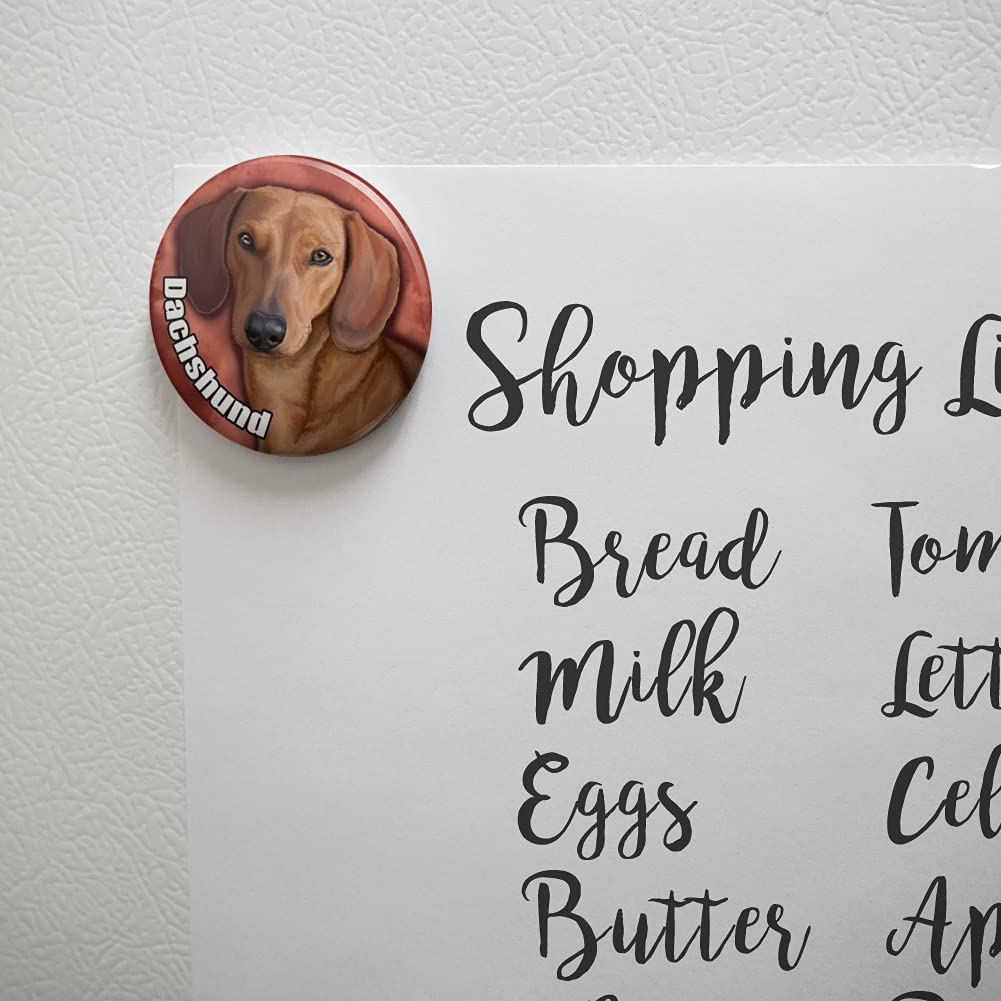 Dachshund
Shopping Li
Bread
Milk
Eggs
Butter
Tom
Lett
Cel
Ap